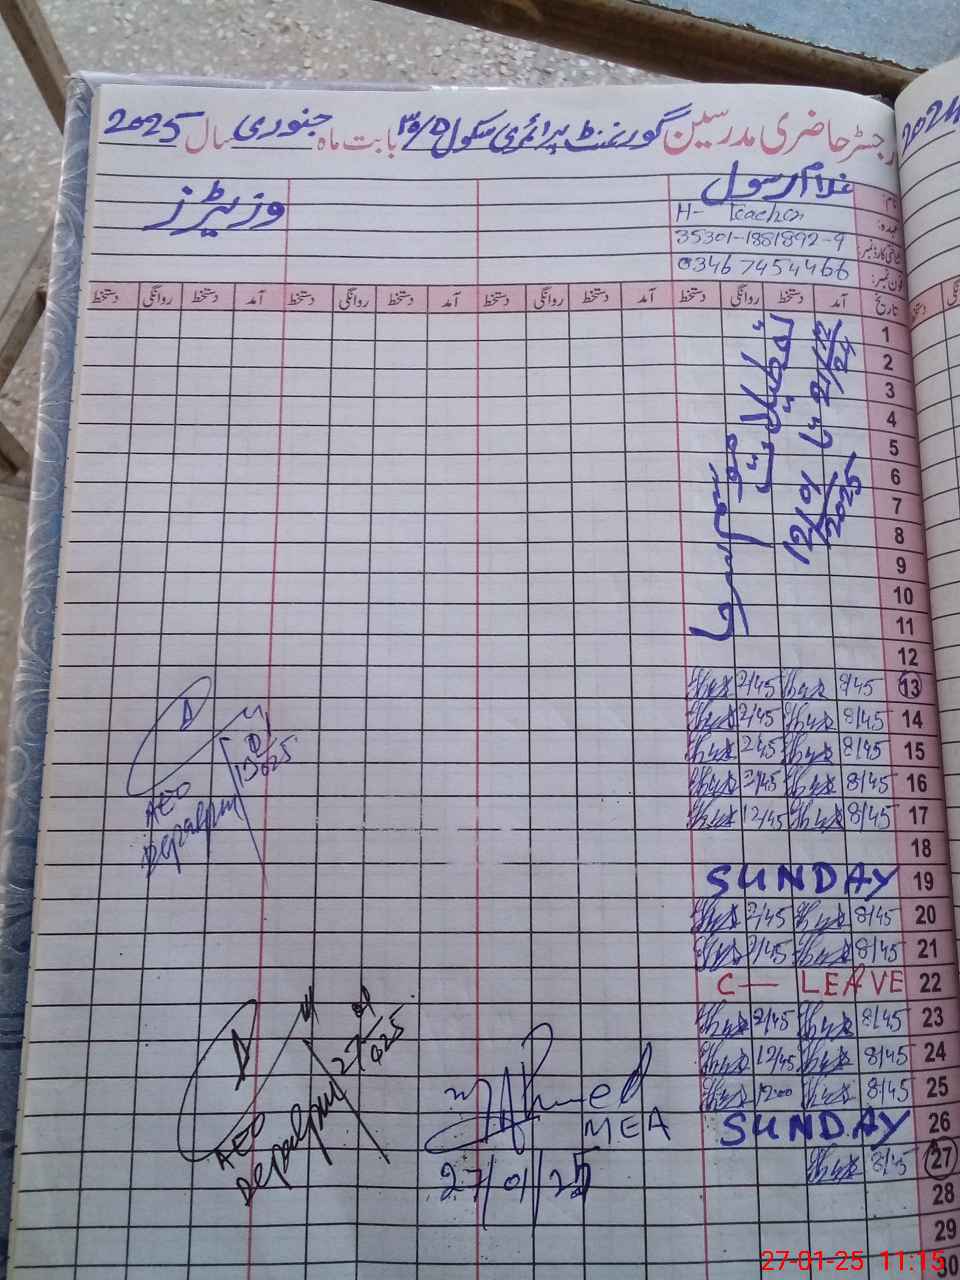 رجسٹر حاضری مدرسین گورنمنٹ پرائمری سکول 39/D بابت ماہ جنوری سال 2025
2024
نام: غلام رسول
وزیٹرز
عہدہ: H- Teacher
35301-1881892-9
فون نمبر: 03467454466
تاریخ آمد دستخط روانگی دستخط آمد دستخط روانگی دستخط آمد دستخط روانگی دستخط آمد دستخط روانگی دستخط
1
2
3
4
5
6
7
8
9
10
11
12
تعطیلات
موسم سرما
21/12/24 تا 12/01/2025
13 8/45 2/45
14 8/45 2/45
15 8/45 2/45
16 8/45 2/45
17 8/45 12/45
18
19 SUNDAY
20 8/45 2/45
21 8/45 2/45
22 C — LEAVE
23 8/45 2/45
24 8/45 12/45
25 8/45 12-00
26 SUNDAY
27 8/45
28
29
30
AEO
Depalpur
13/01/025
AEO
Depalpur
27/01/025
Ahmed
MEA
27/01/25
27-01-25 11:15